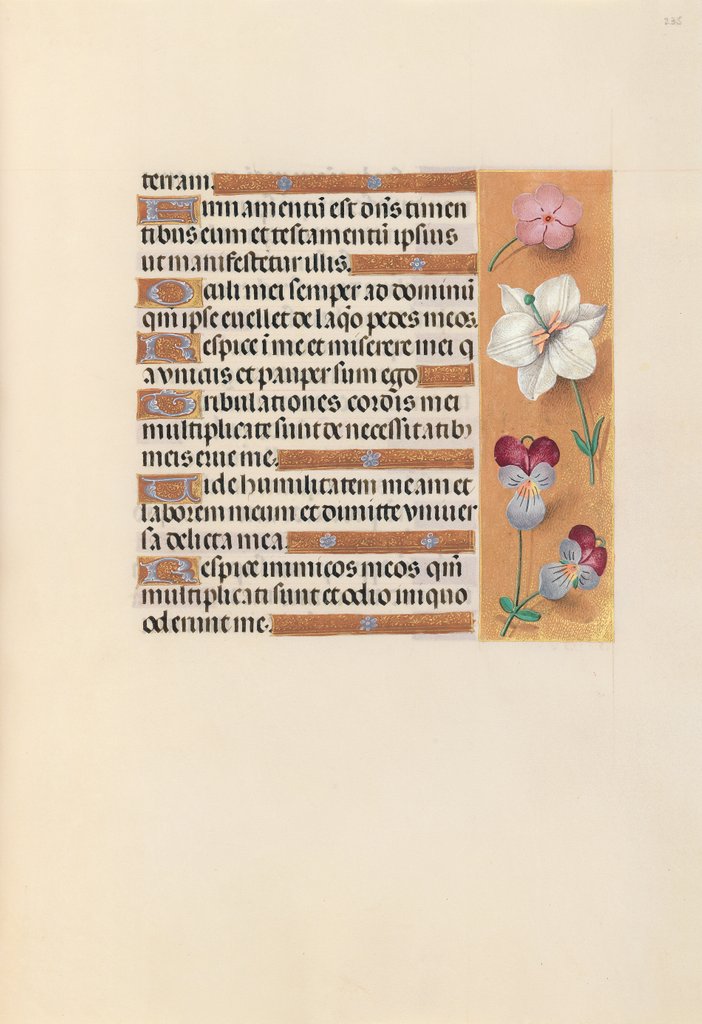 235
terram.
Firmamentū est dn̄s timen
tibus eum et testamentū ipsius
ut manifestetur illis.
Oculi mei semper ad dominū
qm̄ ipse euellet de laq̄o pedes meos.
Respice ī me et miserere mei q
a vnicus et pauper sum ego
Tribulationes cordis mei
multiplicate sunt de necessitatib
meis erue me.
Uide humilitatem meam et
laborem meum et dimitte vniuer
sa delicta mea.
Respice inimicos meos qm̄
multiplicati sunt et odio iniquo
oderunt me.